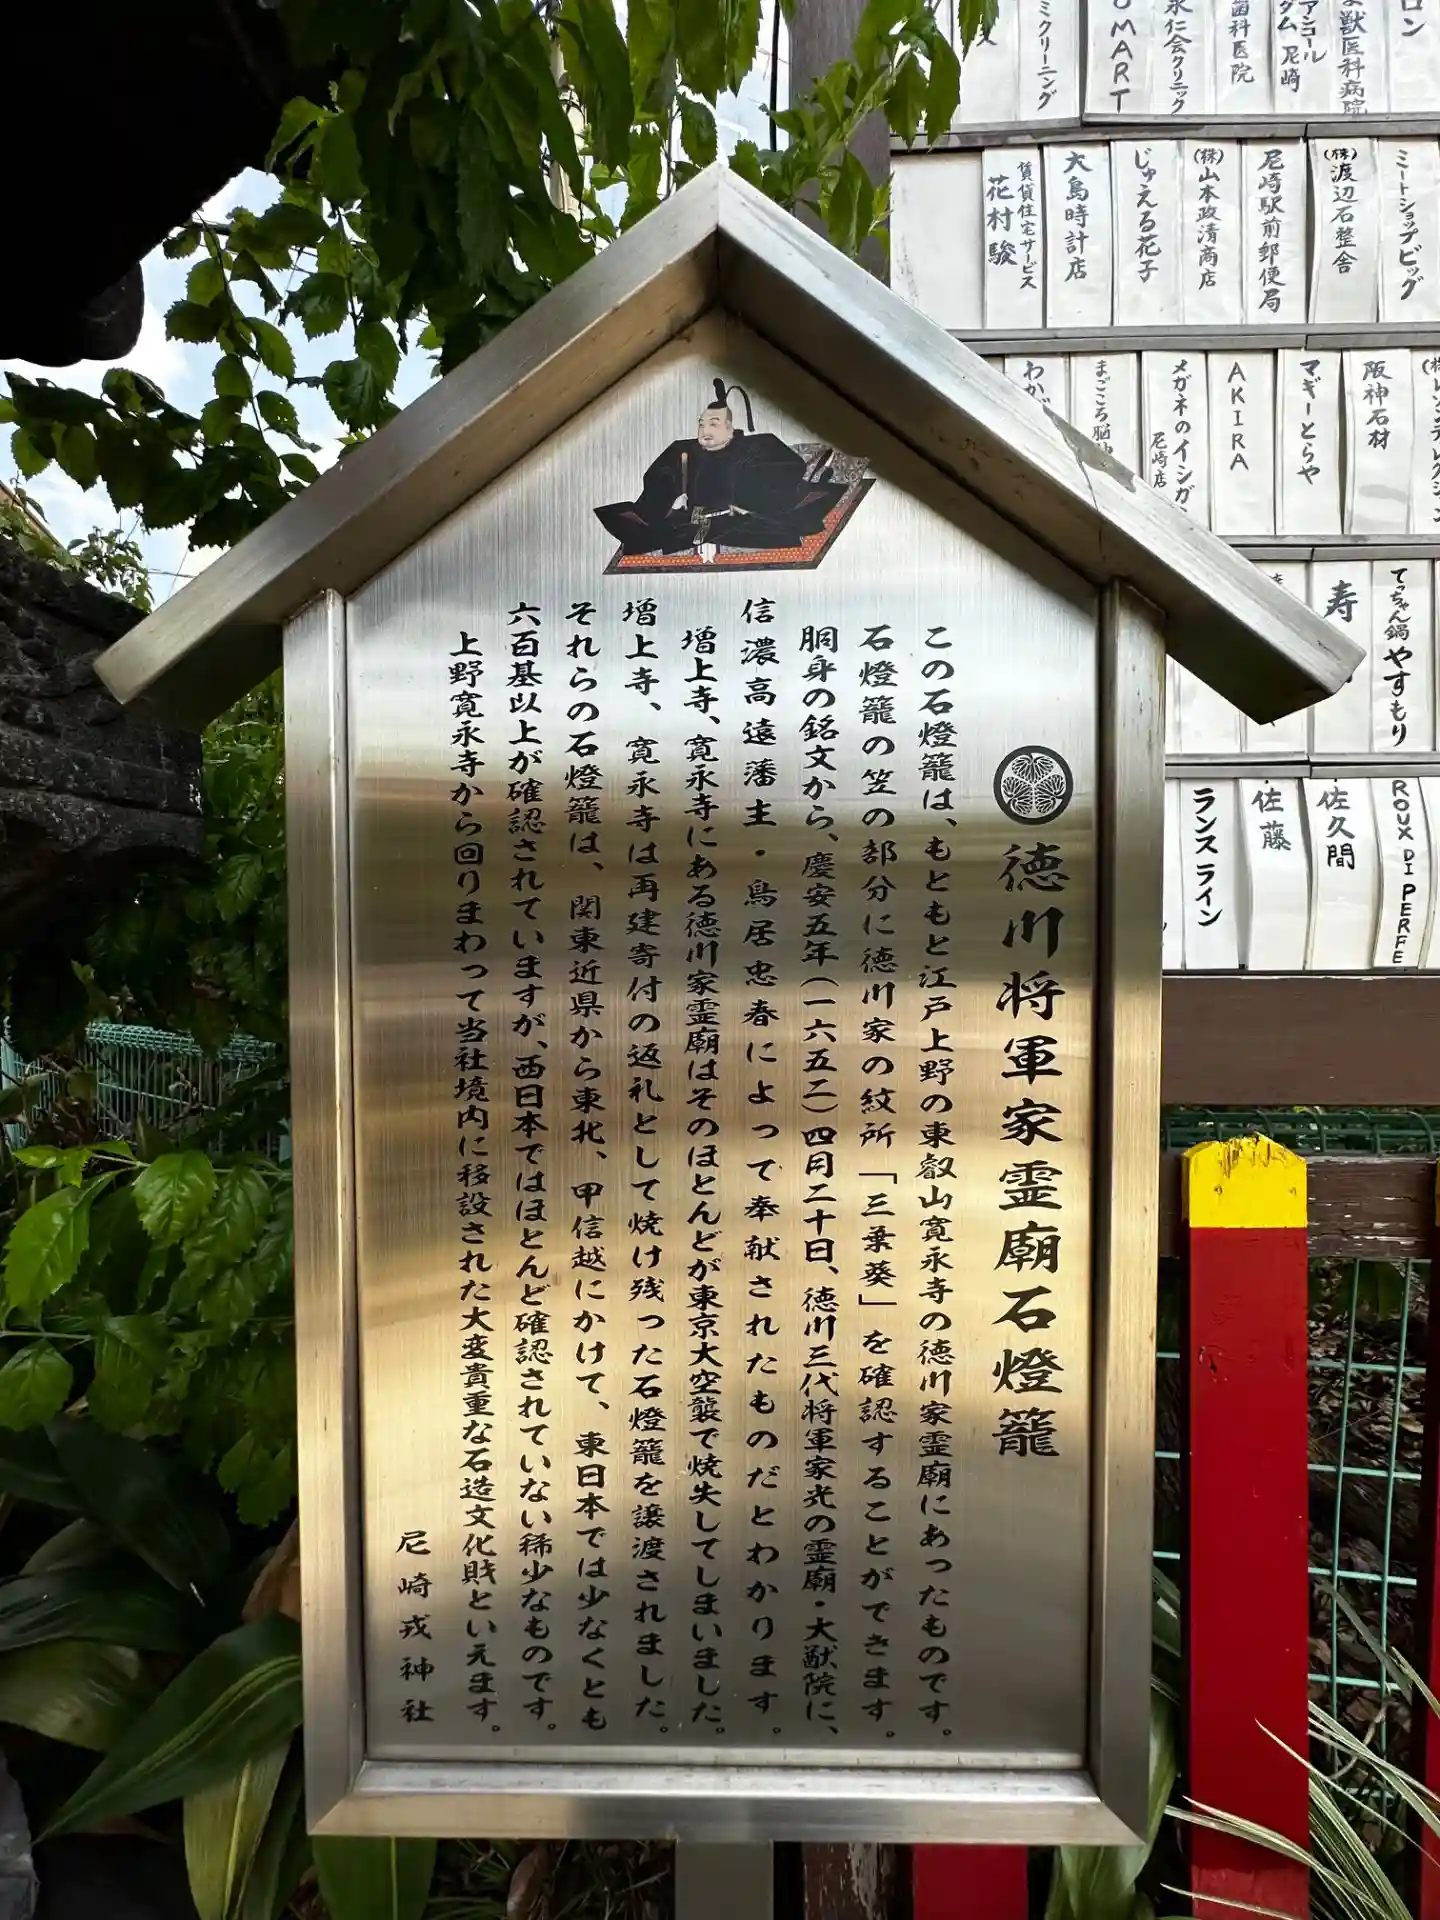 徳川将軍家霊廟石燈籠
この石燈籠は、もともと江戸上野の東叡山寛永寺の徳川家霊廟にあったものです。
石燈籠の笠の部分に徳川家の紋所「三葉葵」を確認することができます。
胴身の銘文から、慶安五年(一六五二)四月二十日、徳川三代将軍家光の霊廟・大猷院に、
信濃高遠藩主・鳥居忠春によって奉献されたものだとわかります。
増上寺、寛永寺にある徳川家霊廟はそのほとんどが東京大空襲で焼失してしまいました。
増上寺、寛永寺は再建寄付の返礼として焼け残った石燈籠を譲渡されました。
それらの石燈籠は、関東近県から東北、甲信越にかけて、東日本では少なくとも
六百基以上が確認されていますが、西日本ではほとんど確認されていない稀少なものです。
上野寛永寺から回りまわって当社境内に移設された大変貴重な石造文化財といえます。
尼崎戎神社
ロン
獣医科病院
アンコール
ダム 尼崎
歯科医院
永仁会クリニック
OMART
ミクリーニング
ミートショップビッグ
(株)渡辺石整舎
尼崎駅前郵便局
(株)山本政清商店
じゅえる花子
大島時計店
賃貸住宅サービス
花村駿
阪神石材
マギーとらや
AKIRA
メガネのイシガ
尼崎店
まごころ脳神
わか
てっちゃん鍋 やすもり
寿
ROUX DI PERFE
佐久間
佐藤
ランスライン